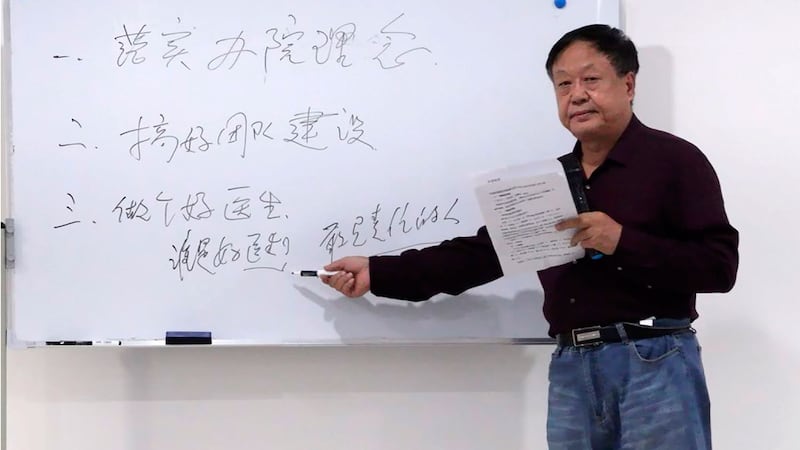 一. 落实办院理念.
二. 搞好团队建设
三. 做个好医生.
谁是好医生
最负责任的人